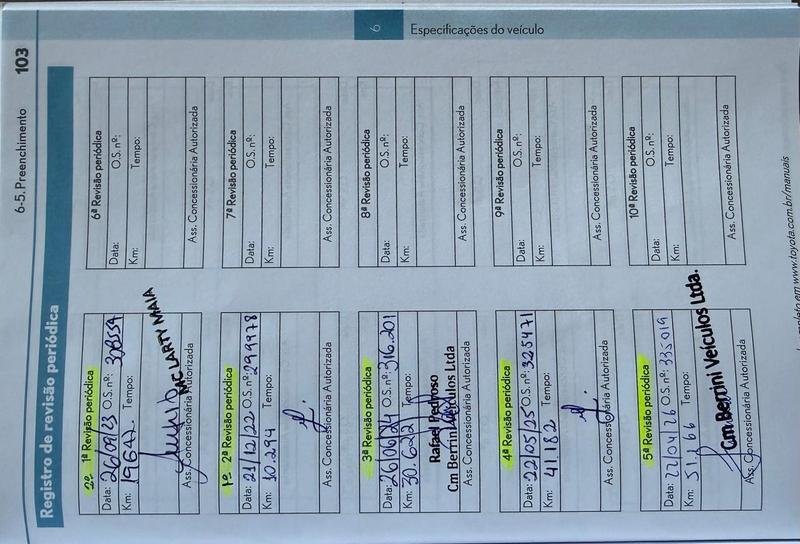 6-5. Preenchimento 103
Registro de revisão periódica
2º 1ª Revisão periódica
Data: 26/09/23 O.S. nº: 308554
Km: 19642 Tempo:
MC LARTY MAIA
Ass. Concessionária Autorizada
1º 2ª Revisão periódica
Data: 21/12/22 O.S. nº: 299978
Km: 10.294 Tempo:
Ass. Concessionária Autorizada
3ª Revisão periódica
Data: 26/06/24 O.S. nº: 316.201
Km: 30.622 Tempo:
Rafael Pedroso
Cm Berrini Veículos Ltda
Ass. Concessionária Autorizada
4ª Revisão periódica
Data: 22/05/25 O.S. nº: 325471
Km: 41.182 Tempo:
Ass. Concessionária Autorizada
5ª Revisão periódica
Data: 22/04/26 O.S. nº: 335019
Km: 51.166 Tempo:
Cm Berrini Veículos Ltda.
Ass. Concessionária Autorizada
6ª Revisão periódica
Data: O.S. nº:
Km: Tempo:
Ass. Concessionária Autorizada
7ª Revisão periódica
Data: O.S. nº:
Km: Tempo:
Ass. Concessionária Autorizada
8ª Revisão periódica
Data: O.S. nº:
Km: Tempo:
Ass. Concessionária Autorizada
9ª Revisão periódica
Data: O.S. nº:
Km: Tempo:
Ass. Concessionária Autorizada
10ª Revisão periódica
Data: O.S. nº:
Km: Tempo:
Ass. Concessionária Autorizada
6
Especificações do veículo
em www.toyota.com.br/manuais